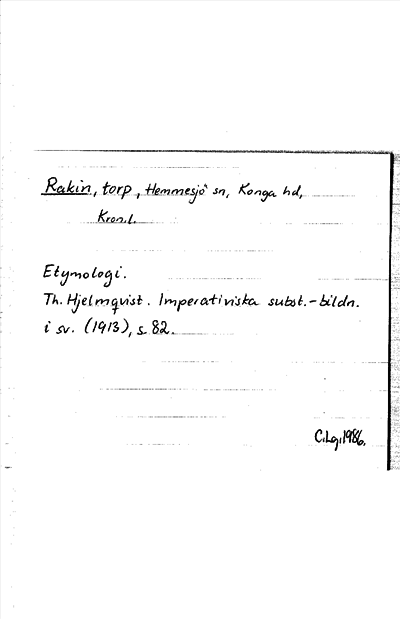 Rakin, torp, Hemmesjö sn, Konga hd,
Kron.l.
Etymologi.
Th. Hjelmqvist. Imperativiska subst.-bildn.
i sv. (1913), s. 82.
C.Lg. 1986.